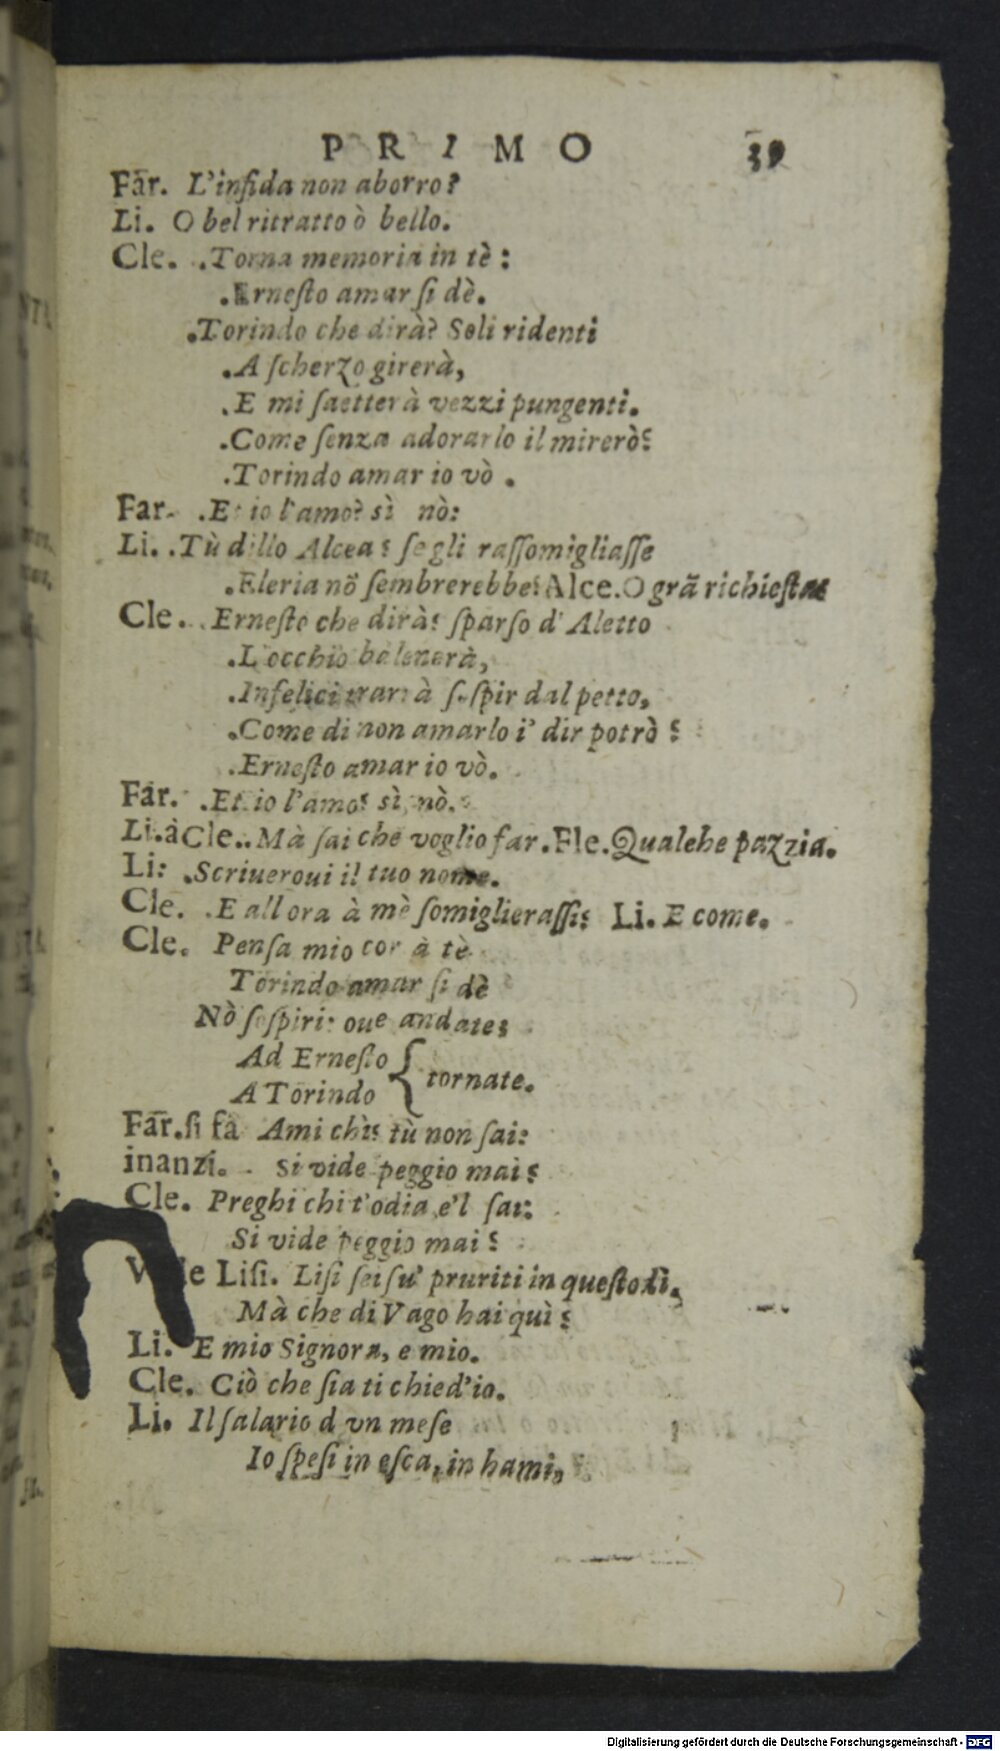 PRIMO 39
Far. L'infida non aborro?
Li. O bel ritratto ò bello.
Cle. .Torna memoria in tè:
.Ernesto amar si dè.
.Torindo che dirà? Soli ridenti
.A scherzo girerà,
.E mi saetterà vezzi pungenti.
.Come senza adorarlo il mirerò?
.Torindo amar io vò.
Far. .Et io l'amo? sì nò:
Li. .Tù dillo Alcea? se gli rassomigliasse
.Eleria nõ sembrerebbe? Alce. O grã richiesta
Cle. .Ernesto che dirà? sparso d' Aletto
.L'occhio balenerà,
.Infelici trarrà sospir dal petto,
.Come di non amarlo i' dir potrò?
.Ernesto amar io vò.
Far. .Et io l'amo? sì, nò.
Li. à Cle. .Mà sai che voglio far. Ele. Qualche pazzia.
Li: .Scriueroui il tuo nome.
Cle. .E allora à mè somiglierassi? Li. E come.
Cle. Pensa mio cor à tè
Torindo amar si dè
Nò sospiri: oue andate?
Ad Ernesto } tornate.
A Torindo
Far. si fa Ami chi? tù non sai:
inanzi. Si vide peggio mai?
Cle. Preghi chi t'odia, e'l sai:
Si vide peggio mai?
Vede Lisi. Lisi sei su' pruriti in questo dì,
Mà che di Vago hai quì?
Li. E mio Signora, e mio.
Cle. Ciò che sia ti chied'io.
Li. Il salario d vn mese
Io spesi in esca, in hami,
Digitalisierung gefördert durch die Deutsche Forschungsgemeinschaft - DFG